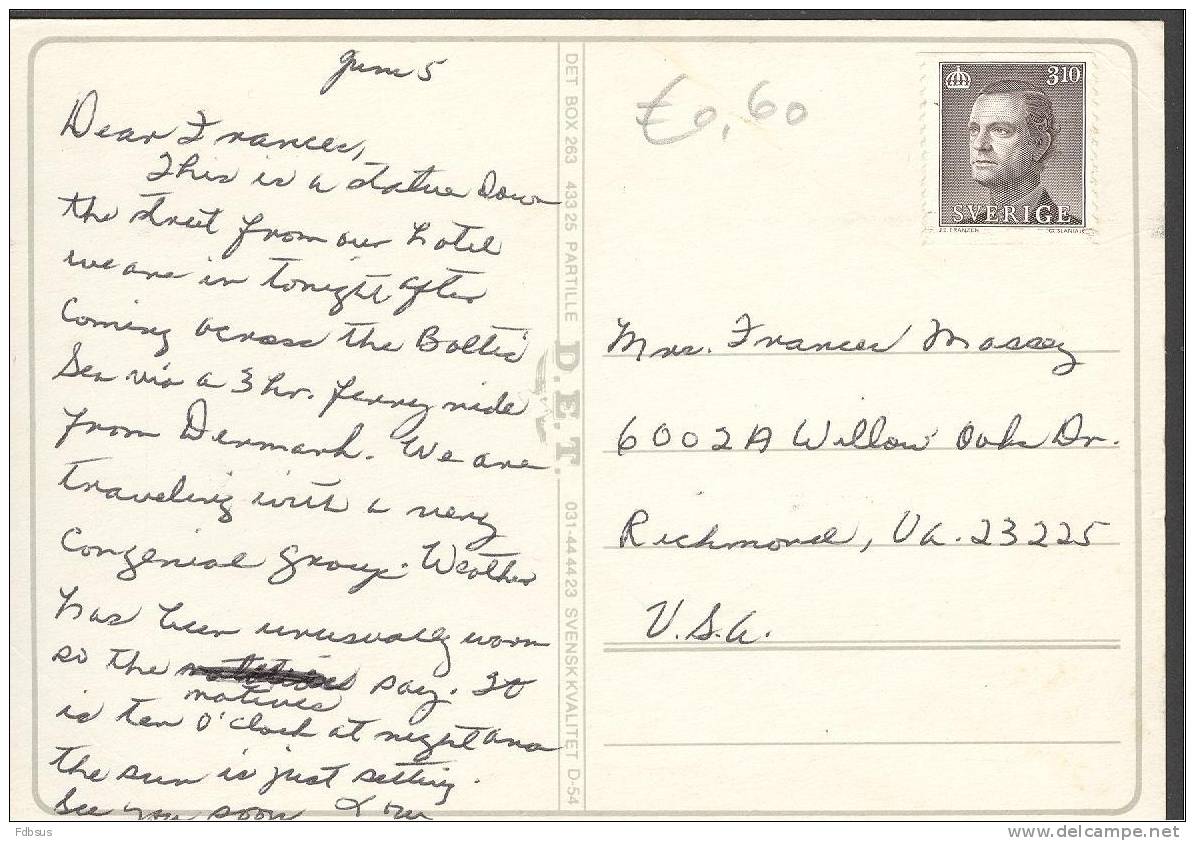 June 5
Dear Frances,
This is a statue down
the street from our hotel
we are in tonight after
coming across the Baltic
Sea via a 3 hr. ferry ride
from Denmark. We are
traveling with a very
congenial group. Weather
has been unusually warm
so the natives say. It
is ten o'clock at night and
the sun is just setting.
See you soon
DET BOX 263 433 25 PARTILLE D.E.T. 031-44 44 23 SVENSK KVALITET D-54
€0,60
310
SVERIGE
Mrs. Frances Massey
6002A Willow Oaks Dr.
Richmond, Va. 23225
U.S.A.
Fdbsus
http://www.delcampe.net